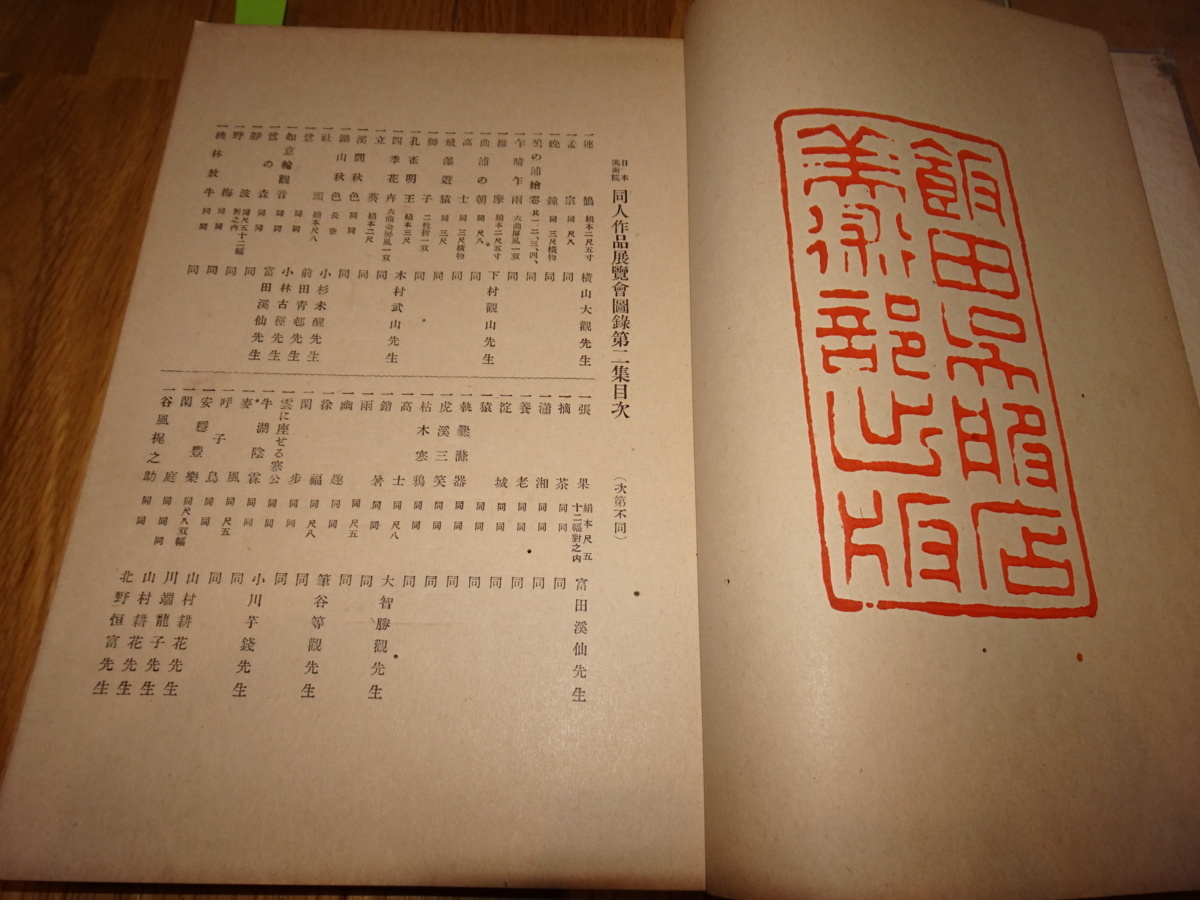 飯田呉服店
美術部出版
日本美術院 同人作品展覽會圖錄第二集目次 (次第不同)
一蓮 鷺 絹本二尺五寸 横山大觀先生
一孟 宗 同 尺八 同
一晩 鐘 同 三尺横物 同
一鵜の浦繪卷 其一、二、三、四、 同
一乍晴乍雨 六曲屏風一双 同
一維 摩 絹本二尺五寸 下村觀山先生
一曲浦の朝 同 尺八 同
一高 士 同 三尺横物 同
一飛瀑遊猿 同 三尺 同
一獅 子 二枚折一双 同
一孔雀明王 絹本三尺 木村武山先生
一四季花卉 六曲金屏風一双 同
一立 葵 絹本二尺 同
一溪間秋色 同 同 同
一湖山秋色 長卷 同
一社 頭 絹本尺八 小杉未醒先生
一鴬 同 同 前田青邨先生
一如意輪觀音 同 同 小林古徑先生
一鴬の森 同 同 富田溪仙先生
一靜 波 同尺五十二幅對之內 同
一野 梅 同 同 同
一桃林放牛 同 同 同
一張 果 絹本尺五十二幅對之內 富田溪仙先生
一摘 茶 同 同 同
一瀟 湘 同 同 同
一養 老 同 同 同
一淀 城 同 同 同
一猿 同 同 同
一執爨滌器 同 同 同
一虎溪三笑 同 同 同
一枯木寒鴉 同 同 同
一高 士 同 尺八 同
一銷 暑 同 同 大智勝觀先生
一雨 同 尺五 同
一幽 趣 同 同
一徐 福 同 尺八 筆谷等觀先生
一閑 步 同 同 同
一雲に座せる寒公 同 同 同
一牛湖陰霖 同 同 小川芋錢先生
一麥 風 同 尺五 同
一呼子鳥 同 同 同
一安穩豊樂 同尺八双幅 山村耕花先生
一閑 庭 同 同 川端龍子先生
一谷風梶之助 同 同 山村耕花先生
北野恒富先生